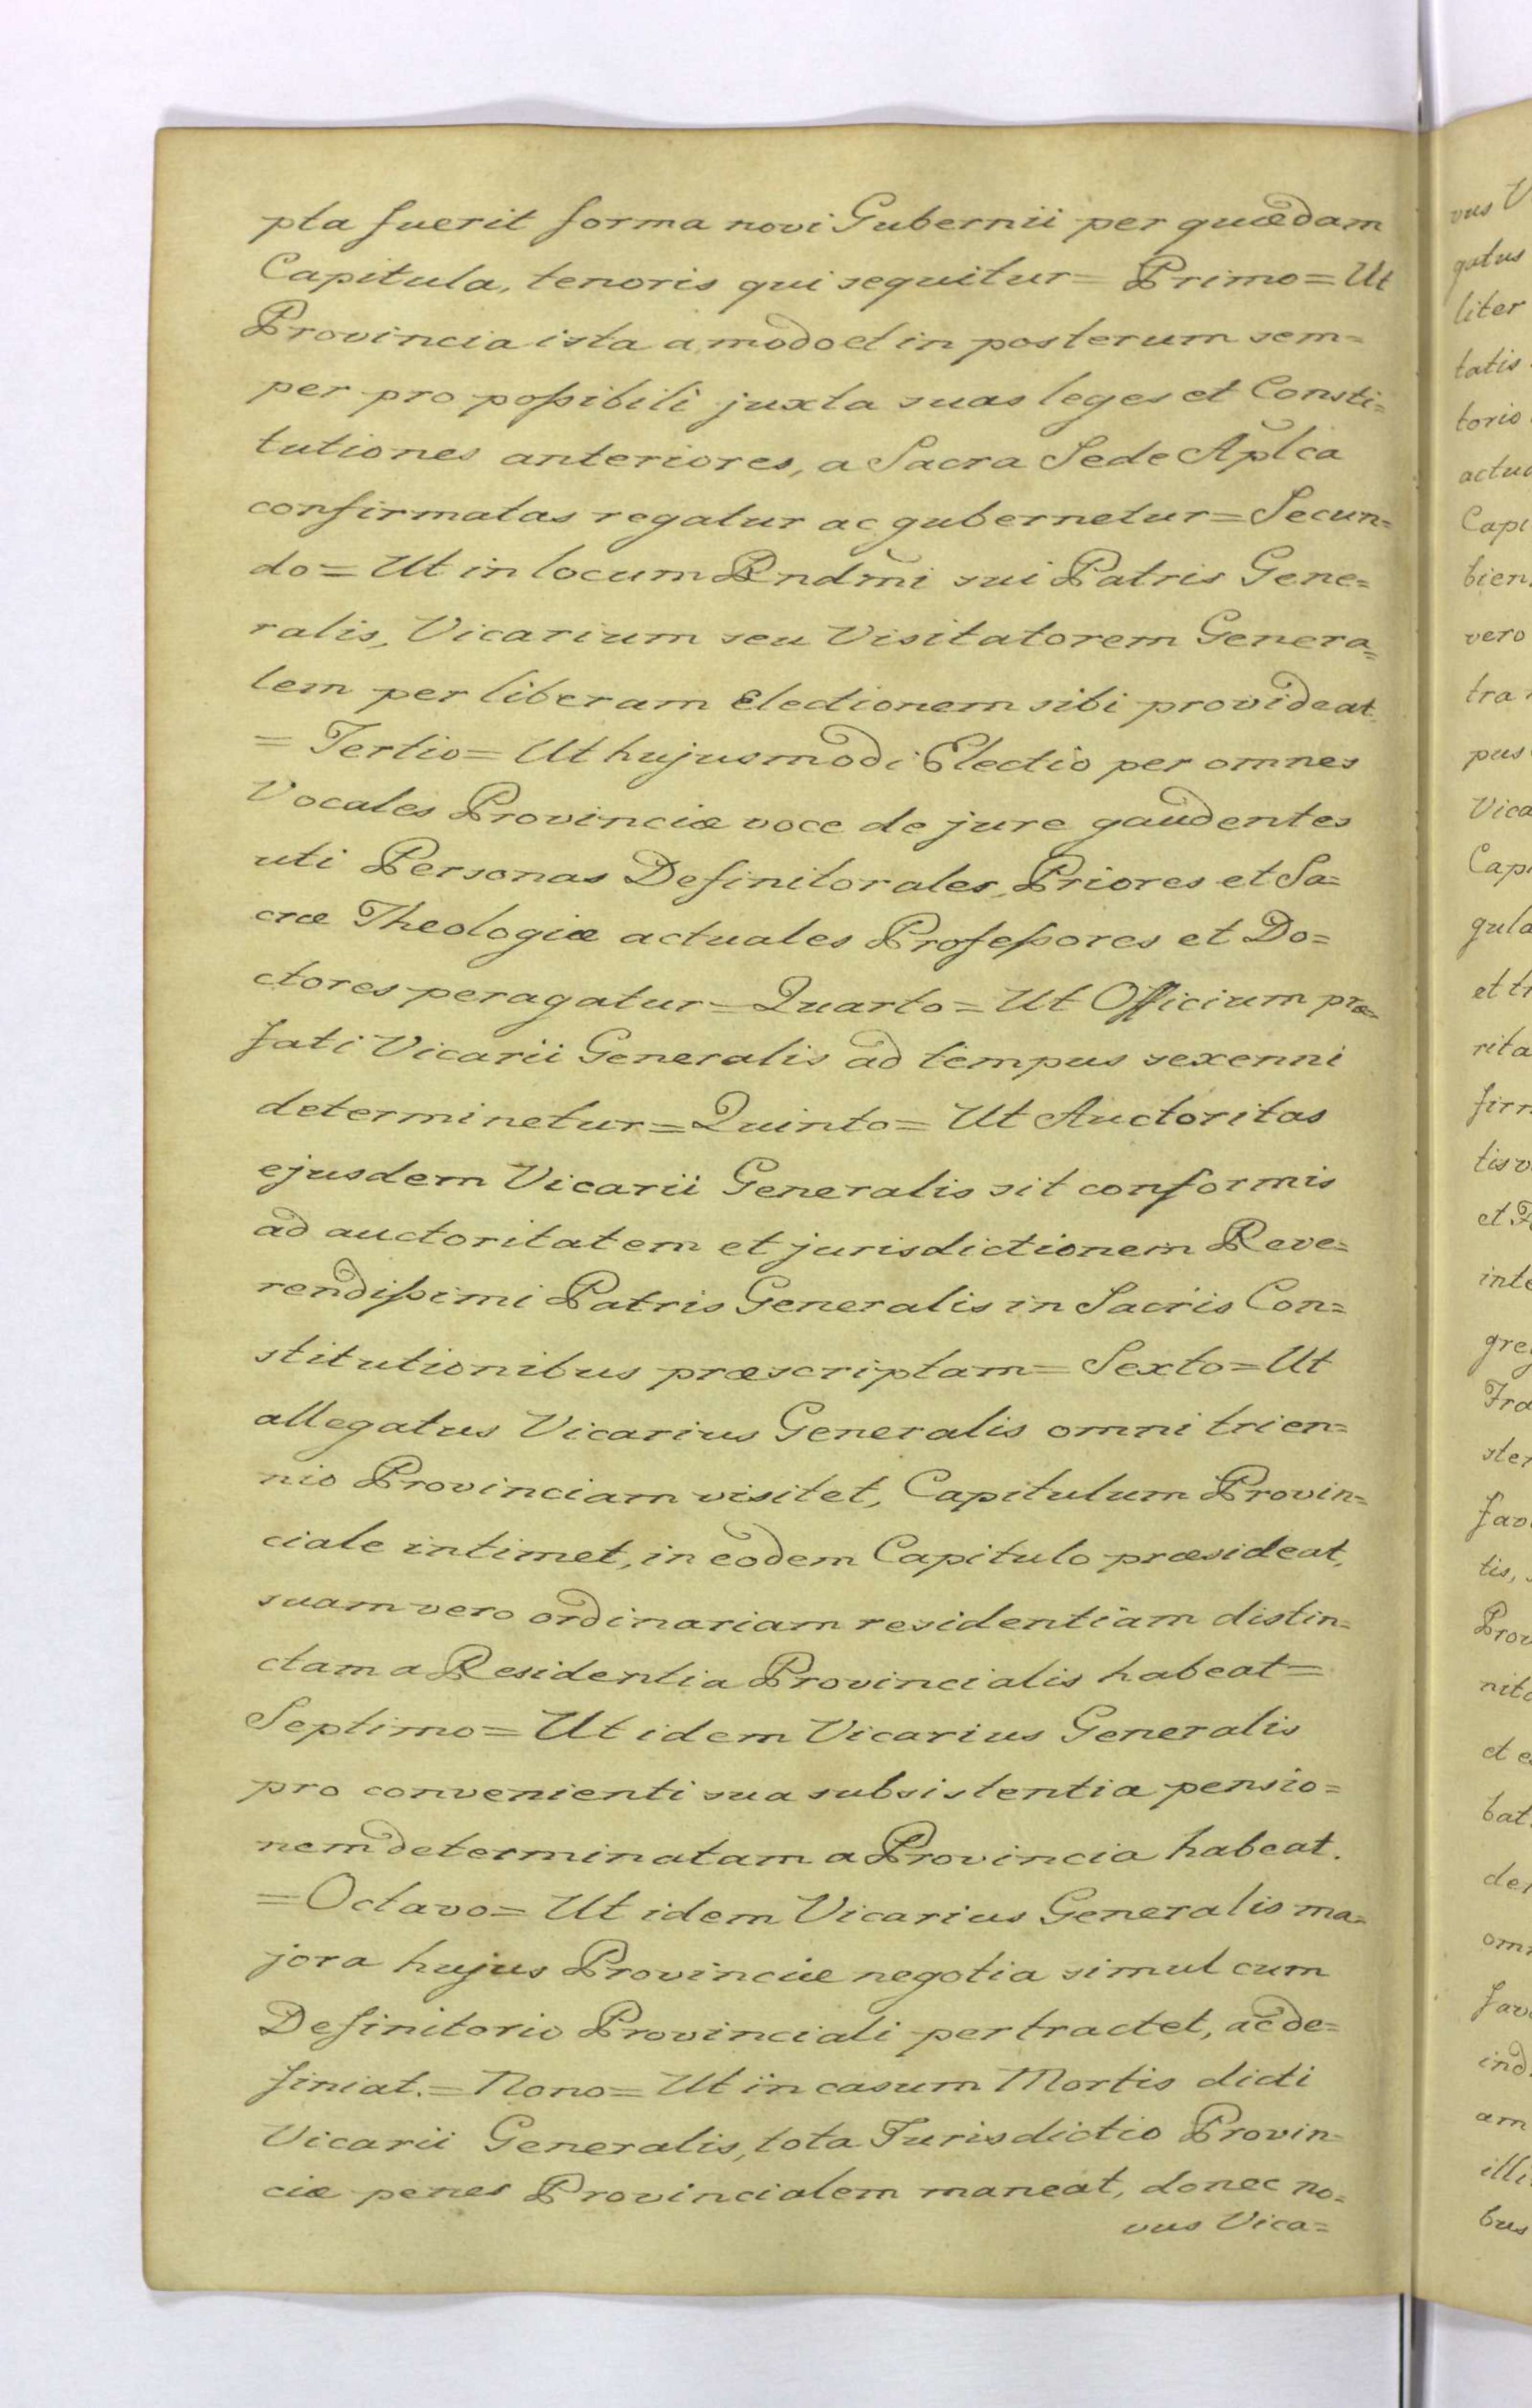 pta fuerit forma novi Gubernii per quædam
Capitula, tenoris qui sequitur = Primo = Ut
Provincia ista a modo et in posterum sem=
per pro poßibili juxta suas leges et Consti=
tutiones anteriores, a Sacra Sede Aplca
confirmatas regatur ac gubernetur = Secun=
do = Ut in locum Rndmi sui Patris Gene=
ralis, Vicarium seu Visitatorem Genera=
lem per liberam electionem sibi provideat
= Tertio = Ut hujusmodi Electio per omnes
Vocales Provinciæ voce de jure gaudentes
uti Personas Definitorales, Priores et Sa=
cræ Theologiæ actuales Profeßores et Do=
ctores peragatur = Quarto = Ut Officium præ=
fati Vicarii Generalis ad tempus sexenni
determinetur = Quinto = Ut Auctoritas
ejusdem Vicarii Generalis sit conformis
ad auctoritatem et jurisdictionem Reve=
rendißimi Patris Generalis in Sacris Con=
stitutionibus præscriptam = Sexto = Ut
allegatus Vicarius Generalis omni trien=
nio Provinciam visitet, Capitulum Provin=
ciale intimet, in eodem Capitulo præsideat,
suam vero ordinariam residentiam distin=
ctam a Residentia Provincialis habeat =
Septimo = Ut idem Vicarius Generalis
pro convenienti sua subsistentia pensio=
nem determinatam a Provincia habeat.
= Octavo = Ut idem Vicarius Generalis ma=
jora hujus Provinciæ negotia simul cum
Definitorio Provinciali pertractet, ac de=
finiat. = Nono = Ut in casum Mortis dicti
Vicarii Generalis, tota Jurisdictio Provin=
ciæ penes Provincialem maneat, donec no=
vus Vica=
vus V
gatus
liter
tatis
torio
actu
Capi
bien
vero
tra
pus
Vica
Capi
gula
et t
rita
firm
tis v
et F
inte
gre
Fra
ster
fav
tis,
Prov
nito
et e
bat
der
omn
fav
ind
am
illi
bus